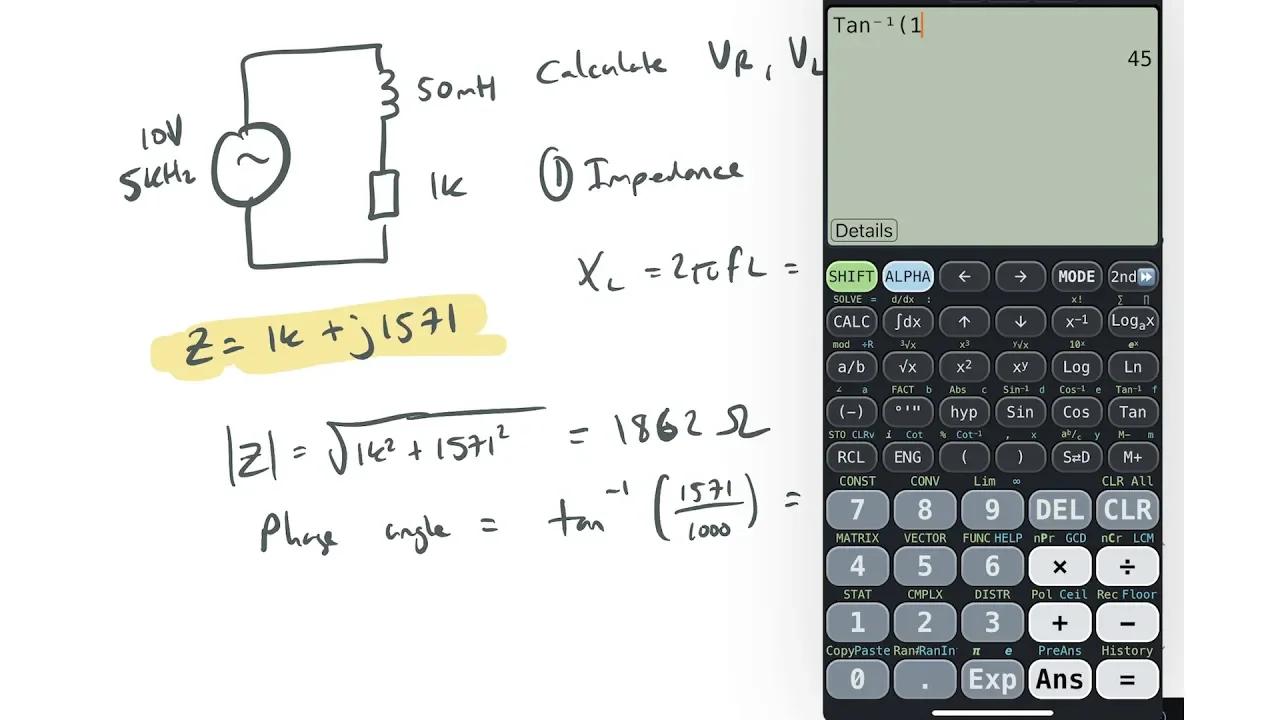 10V
5KHz
50mH
1k
Calculate VR, VL
① Impedance
XL = 2πfL =
Z = 1k + j1571
|Z| = √1k² + 1571² = 1862 Ω
Phase angle = tan⁻¹ (1571/1000) =
Tan⁻¹(1
45
Details
SHIFT ALPHA ← → MODE 2nd
SOLVE = d/dx : x! ∑ ∏
CALC ∫dx ↑ ↓ x⁻¹ Logₐx
mod ÷R ³√x x³ ʸ√x 10ˣ eˣ
a/b √x x² xʸ Log Ln
∠ a FACT b Abs c Sin⁻¹ d Cos⁻¹ e Tan⁻¹ f
(−) °'" hyp Sin Cos Tan
STO CLRv i Cot % Cot⁻¹ , x aᵇ/c y M− m
RCL ENG ( ) S⇄D M+
CONST CONV Lim ∞ CLR All
7 8 9 DEL CLR
MATRIX VECTOR FUNC HELP nPr GCD nCr LCM
4 5 6 × ÷
STAT CMPLX DISTR Pol Ceil Rec Floor
1 2 3 + −
Copy Paste Ran# RanIn π e PreAns History
0 . Exp Ans =